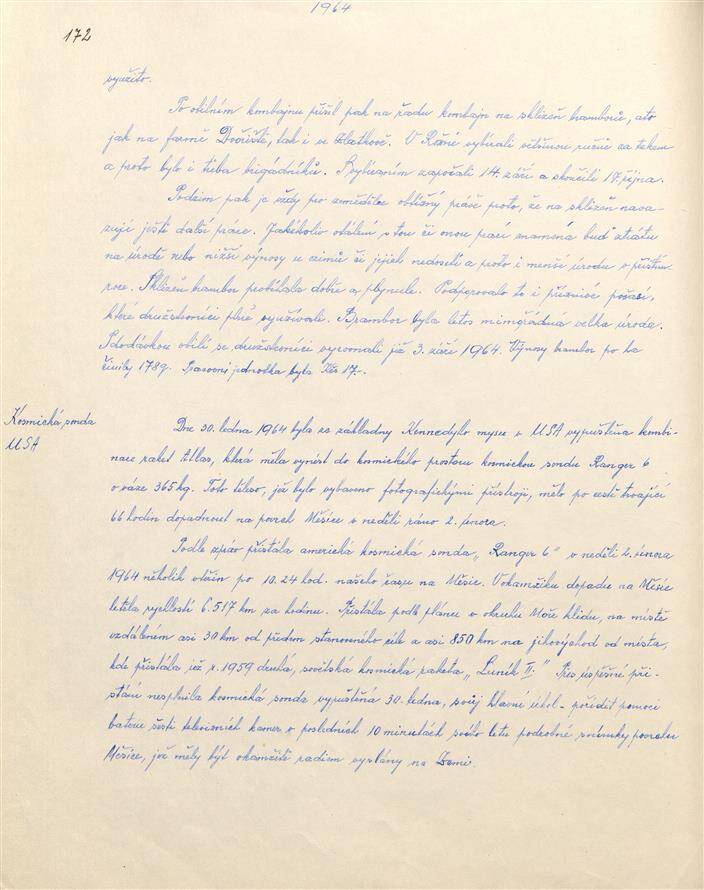 1964
172
využito.
Po obilném kombajnu přišel pak na řadu kombajn na sklizeň bramborů, a to
jak na farmě Dvořiště, tak i ve Zlatkově. V Rožné vybírali většinou ručně za
a proto bylo i třeba brigádníků. S vybíráním započali 14. září a skončili 17. října.
Podzim pak je vždy pro zemědělce obtížný právě proto, že na sklizeň nava-
zují ještě další práce. Jakékoliv otálení s tou či onou prací znamená buď ztrátu
na úrodě nebo nižší výnosy u ozimů či jejich nedosetí a proto i menší úrodu v příštím
roce. Sklizeň brambor probíhala dobře a plynule. Podporovalo to i příznivé počasí,
které družstevníci plně využívali. Brambor byla letos mimořádná velká úroda.
S dodávkou obilí se družstevníci vyrovnali již 3. září 1964. Výnosy brambor po ha
činily 178q. Pracovní jednotka byla Kčs 17.-.
Kosmická sonda
USA
Dne 30. ledna 1964 byla ze základny Kennedyho mysu v USA vypuštěna kombi-
nace raket Atlas, která měla vynést do kosmického prostoru kosmickou sondu Ranger 6
o váze 365 kg. Toto těleso, jež bylo vybaveno fotografickými přístroji, mělo po cestě trvající
66 hodin dopadnout na povrch Měsíce v neděli ráno 2. února.
Podle zpráv přistála americká kosmická sonda „Ranger 6" v neděli 2. února
1964 několik vteřin po 10.24 hod. našeho času na Měsíce. V okamžiku dopadu na Měsíc
letěla rychlostí 6.517 km za hodinu. Přistála podle plánu v okruhu Moře klidu, na místě
vzdáleném asi 30 km od předem stanoveného cíle a asi 850 km na jihovýchod od místa,
kde přistála již r. 1959 druhá, sovětská kosmická raketa „Lunik II." Přes úspěšné při-
stání nesplnila kosmická sonda vypuštěná 30. ledna, svůj hlavní úkol - pořídit pomocí
baterie šesti televizních kamer v posledních 10 minutách svého letu podrobné snímky povrchu
Měsíce, jež měly být okamžitě radiem vyslány na Zemi.